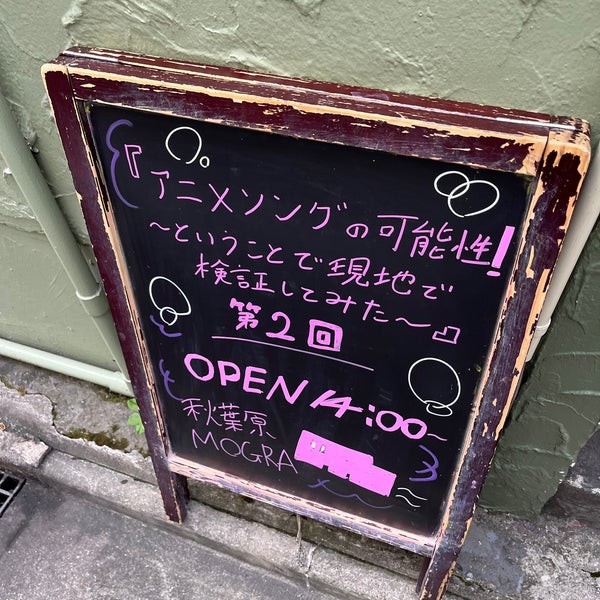 『アニメソングの可能性!
〜ということで現地で
検証してみた〜』
第2回
OPEN 14:00〜
秋葉原
MOGRA